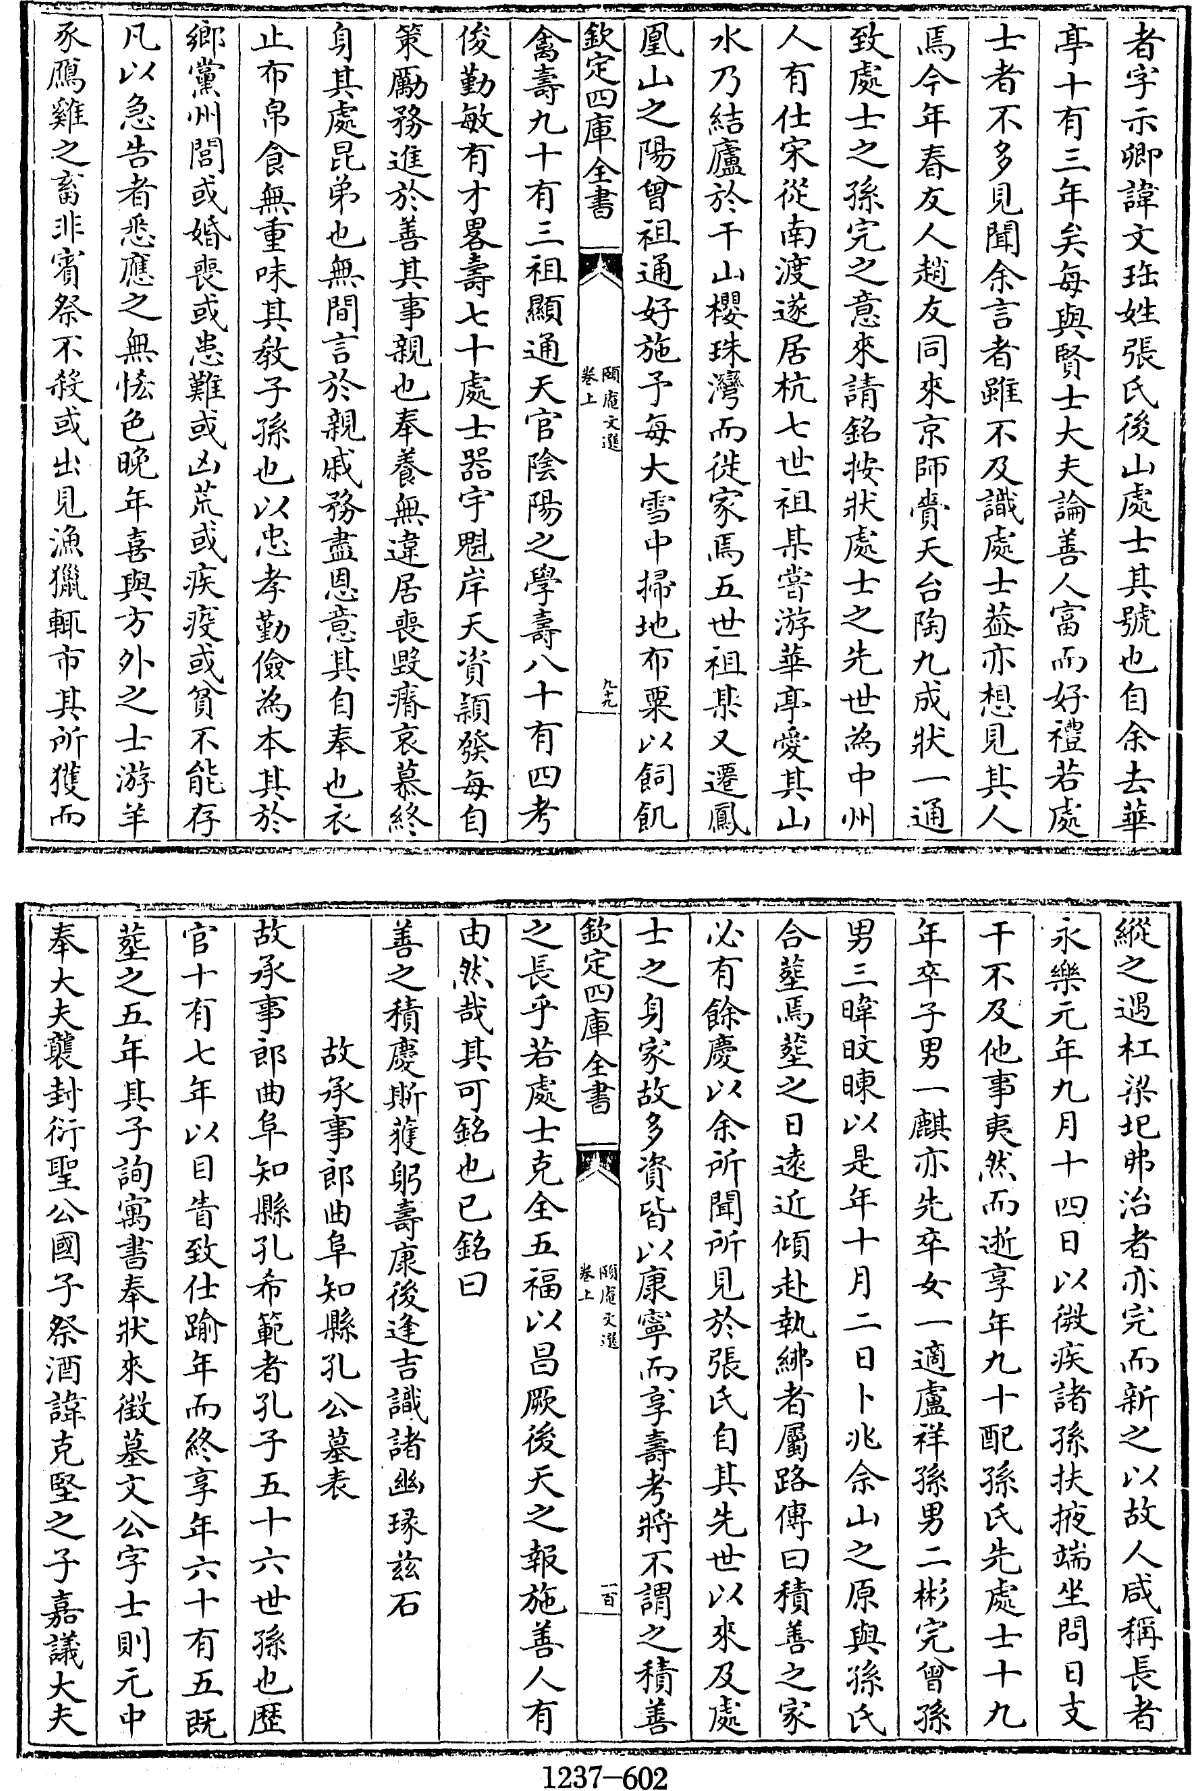 者字示卿諱文珤姓張氏後山處士其號也自余去華
亭十有三年矣每與賢士大夫論善人富而好禮若處
士者不多見聞余言者雖不及識處士葢亦想見其人
焉今年春友人趙友同來京師賫天台陶九成狀一通
致處士之孫完之意來請銘按狀處士之先世為中州
人有仕宋從南渡遂居杭七世祖某嘗游華亭愛其山
水乃結廬於干山櫻珠灣而徙家焉五世祖某又遷鳳
凰山之陽曾祖通好施予每大雪中掃地布粟以飼飢
欽定四庫全書
頤庵文選
卷上
九十九
禽壽九十有三祖顯通天官陰陽之學壽八十有四考
俊勤敏有才畧壽七十處士器宇魁岸天資穎發每自
策勵務進於善其事親也奉養無違居喪毀瘠哀慕終
身其處昆弟也無間言於親戚務盡恩意其自奉也衣
止布帛食無重味其教子孫也以忠孝勤儉為本其於
鄉黨州閭或婚喪或患難或凶荒或疾疫或貧不能存
凡以急告者悉應之無恡色晚年喜與方外之士游羊
豕鴈雞之畜非賓祭不殺或出見漁獵輒市其所獲而
縱之遇杠梁圯弗治者亦完而新之以故人咸稱長者
永樂元年九月十四日以微疾諸孫扶掖端坐問日支
干不及他事夷然而逝享年九十配孫氏先處士十九
年卒子男一麒亦先卒女一適盧祥孫男二彬完曾孫
男三暐旼暕以是年十月二日卜兆佘山之原與孫氏
合塟焉塟之日遠近傾赴執紼者屬路傳曰積善之家
必有餘慶以余所聞所見於張氏自其先世以來及處
士之身家故多資皆以康寧而享壽考將不謂之積善
欽定四庫全書
頤庵文選
卷上
一百
之長乎若處士克全五福以昌厥後天之報施善人有
由然哉其可銘也已銘曰
善之積慶斯蓰躬壽康後逢吉識諸幽瑑玆石
故承事郎曲阜知縣孔公墓表
故承事郎曲阜知縣孔希範者孔子五十六世孫也歷
官十有七年以目眚致仕踰年而終享年六十有五既
塟之五年其子詢寓書奉狀來徵墓文公字士則元中
奉大夫襲封衍聖公國子祭酒諱克堅之子嘉議大夫
1237-602